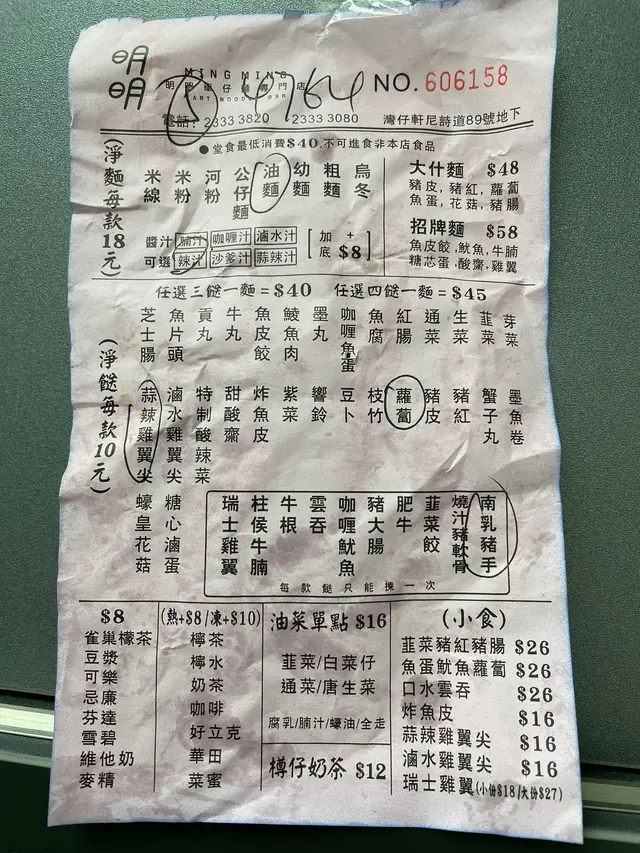 明明
MING MING
明明車仔麵專門店
CART NOODLE BAR
NO. 606158
電話: 2333 3820 2333 3080
灣仔軒尼詩道89號地下
●堂食最低消費$40,不可進食非本店食品
(淨麵每款18元)
米線
米粉
河粉
公仔麵
油麵
幼麵
粗麵
烏冬
醬汁可選
腩汁 咖喱汁 滷水汁
辣汁 沙爹汁 蒜辣汁
[加底 + $8]
大什麵 $48
豬皮,豬紅,蘿蔔
魚蛋,花菇,豬腸
招牌麵 $58
魚皮餃,魷魚,牛腩
糖芯蛋,酸齋,雞翼
任選三餸一麵=$40 任選四餸一麵=$45
(淨餸每款10元)
芝士腸
魚片頭
貢丸
牛丸
魚皮餃
鯪魚肉
墨丸
咖喱魚蛋
魚腐
紅腸
通菜
生菜
韮菜
芽菜
蒜辣雞翼尖
滷水雞翼尖
特制酸辣菜
甜酸齋
炸魚皮
紫菜
響鈴
豆卜
枝竹
蘿蔔
豬皮
豬紅
蟹子丸
墨魚卷
蠔皇花菇
糖心滷蛋
瑞士雞翼
柱侯牛腩
牛根
雲吞
咖喱魷魚
豬大腸
肥牛
韮菜餃
燒汁豬軟骨
南乳豬手
每款餸只能揀一次
$8
雀巢檬茶
豆漿
可樂
忌廉
芬達
雪碧
維他奶
麥精
(熱+$8/凍+$10)
檸茶
檸水
奶茶
咖啡
好立克
華田
菜蜜
油菜單點 $16
韮菜/白菜仔
通菜/唐生菜
腐乳/腩汁/蠔油/全走
樽仔奶茶 $12
(小食)
韮菜豬紅豬腸 $26
魚蛋魷魚蘿蔔 $26
口水雲吞 $26
炸魚皮 $16
蒜辣雞翼尖 $16
滷水雞翼尖 $16
瑞士雞翼(小份$18/大份$27)